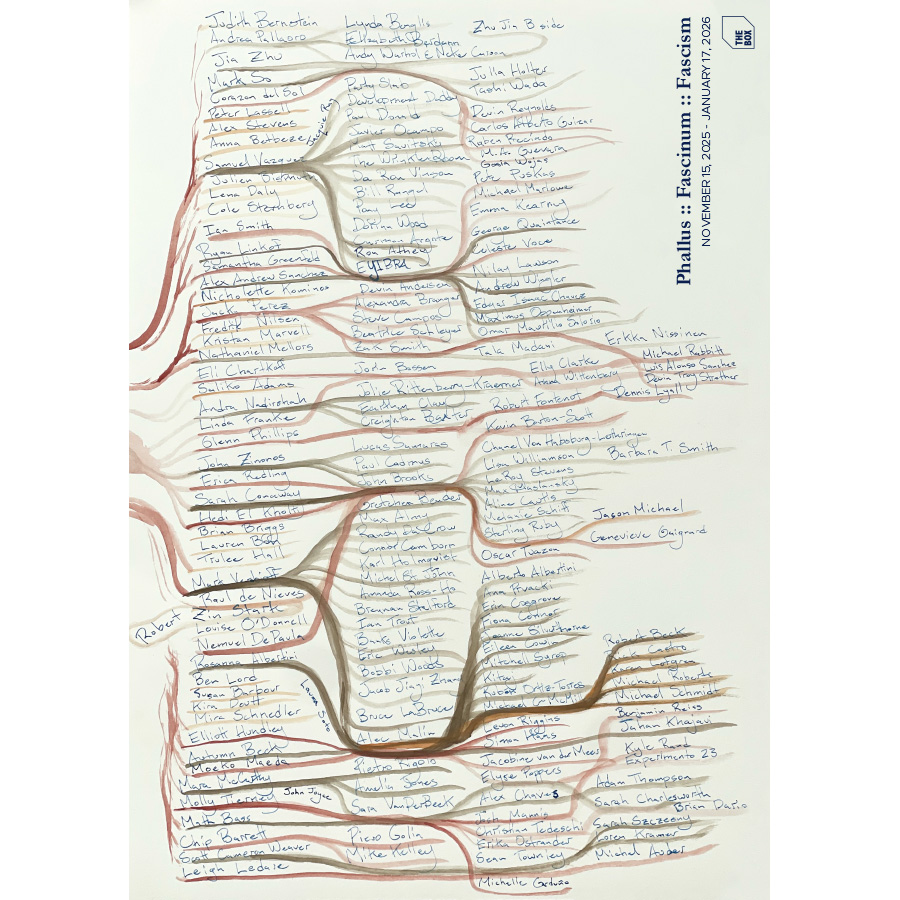 Phallus :: Fascinum :: Fascism
NOVEMBER 15, 2025 - JANUARY 17, 2026
THE BOX
Judith Bernstein
Andrea Pallaoro
Jia Zhu
Mark So
Corazon del Sol
Peter Lassell
Alex Stevens
Anna Betbeze
Samuel Vazquez
Julien
Lena Daly
Cole Sternberg
Ian Smith
Ryan Linkof
Samantha Greenfeld
Alex Andrew Sanchez
Nicholette Kominos
Jack Perez
Fredrik Nilsen
Kristan Marvell
Nathaniel Mellors
Eli Chartkoff
Saliko Adams
Andra Nadirshah
Linda Franke
Glenn Phillips
John Zinonos
Erica Redling
Sarah Conaway
Hedi El Kholti
Brian Briggs
Lauren Bon
Trulee Hall
Mark Verabioff
Raul de Nieves
Zin Starke
Louise O'Donnell
Nemuel DePaula
Robert
Rosanna Albertini
Ben Lord
Susan Barbour
Kira Doutt
Mira Schnedler
Elliott Hundley
Autumn Beck
Moeko Maeda
Mara McCarthy
Molly Tierney
John Joyce
Math Bass
Chip Barrett
Scott Cameron Weaver
Leigh Ledare
Lynda Benglis
Elizabeth
Andy Warhol &
Party Slab
Development Daddy
Paw Donald
Javier Ocampo
Savitsky
The Winklesboom
Da Ron Vinson
Bill
Pony Led
Dorian Wood
Ron Athey
Devin Andersen
Alexandra Branger
Steve Campos
Beatrice Schleyer
Smith
Jorin Bossen
Jolie Rittenberry-Kraemer
Earthen Clay
Creighton Baxter
Lucas Samaras
Paul Cadmus
John Brooks
Gretchen Bender
Max Almy
Randi
Connor Camborn
Karl Holmqvist
Michel St John
Amanda Ross-Ho
Brennan Stelford
Ian Trout
Banks Violette
Eric Wesley
Bobbi Woods
Bruce LaBruce
Alec Malin
Amelia Jones
Sara VanDerBeek
Piero Golia
Mike Kelley
Zhu Jia B side
Julia Holter
Tashi Wada
Devin Reynolds
Carlos Alberto
Ruben Preciado
M.A. Guevara
Gosia Wojas
Pete Puskas
Michael Marlowe
Emma Kearney
George Quaintance
Celeste Voce
Nilay Lawson
Andrew Winigler
Edgar Isaac Chavez
Maximus Oppenheimer
Omar Mauricio
Tala Madani
Elly Clarke
Atend Wittenberg
Robert Fontenot
Kevin Baron-Scott
Chanel Von Habsburg-Lothringen
Lisa Williamson
LeRoy Stevens
Max Maslansky
Aline Cautis
Melanie Schiff
Sterling Ruby
Oscar Tuazon
Alberto Albertini
Ann Hvacki
Erin Cosgrove
Fiona Connor
Silverthorne
Eileen Cowin
Mitchell Syrop
Kita
Ortiz-Torres
Levon Riggins
Simon Haas
Jacobine van der Meer
Elyse Poppers
Alex Chaves
Josh Mannis
Christian Tedeschi
Erika Ostrander
Sean Townley
Michelle
Erkka Nissinen
Michael Rabbitt
Luis Alonso Sanchez
Devin Troy Strother
Dennis Lyall
Barbara T. Smith
Jason Michael
Genevieve Gaignard
Robert Beck
Castro
Michael Roberts
Michael Schmidt
Benjamin Reiss
Jahan Khajavi
Kyle Rand
Experimento 23
Adam Thompson
Sarah Charlesworth
Brian Dario
Sarah Szczesny
Loren Kramer
Michel Auder